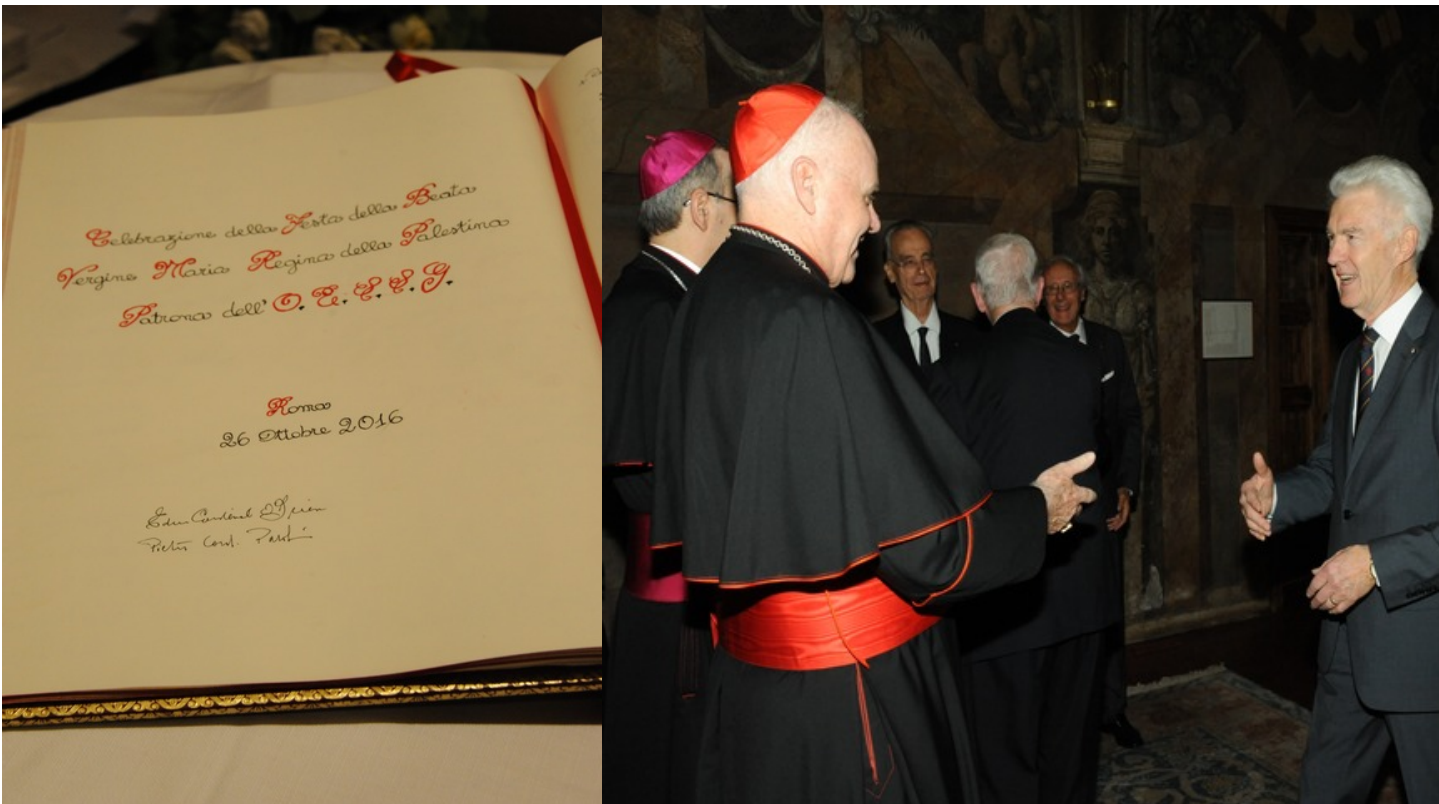 Celebrazione della Festa della Beata
Vergine Maria Regina della Palestina
Patrona dell' O.E.S.S.G.
Roma
26 Ottobre 2016
Edwin Cardinal O'Brien
Pietro Card.